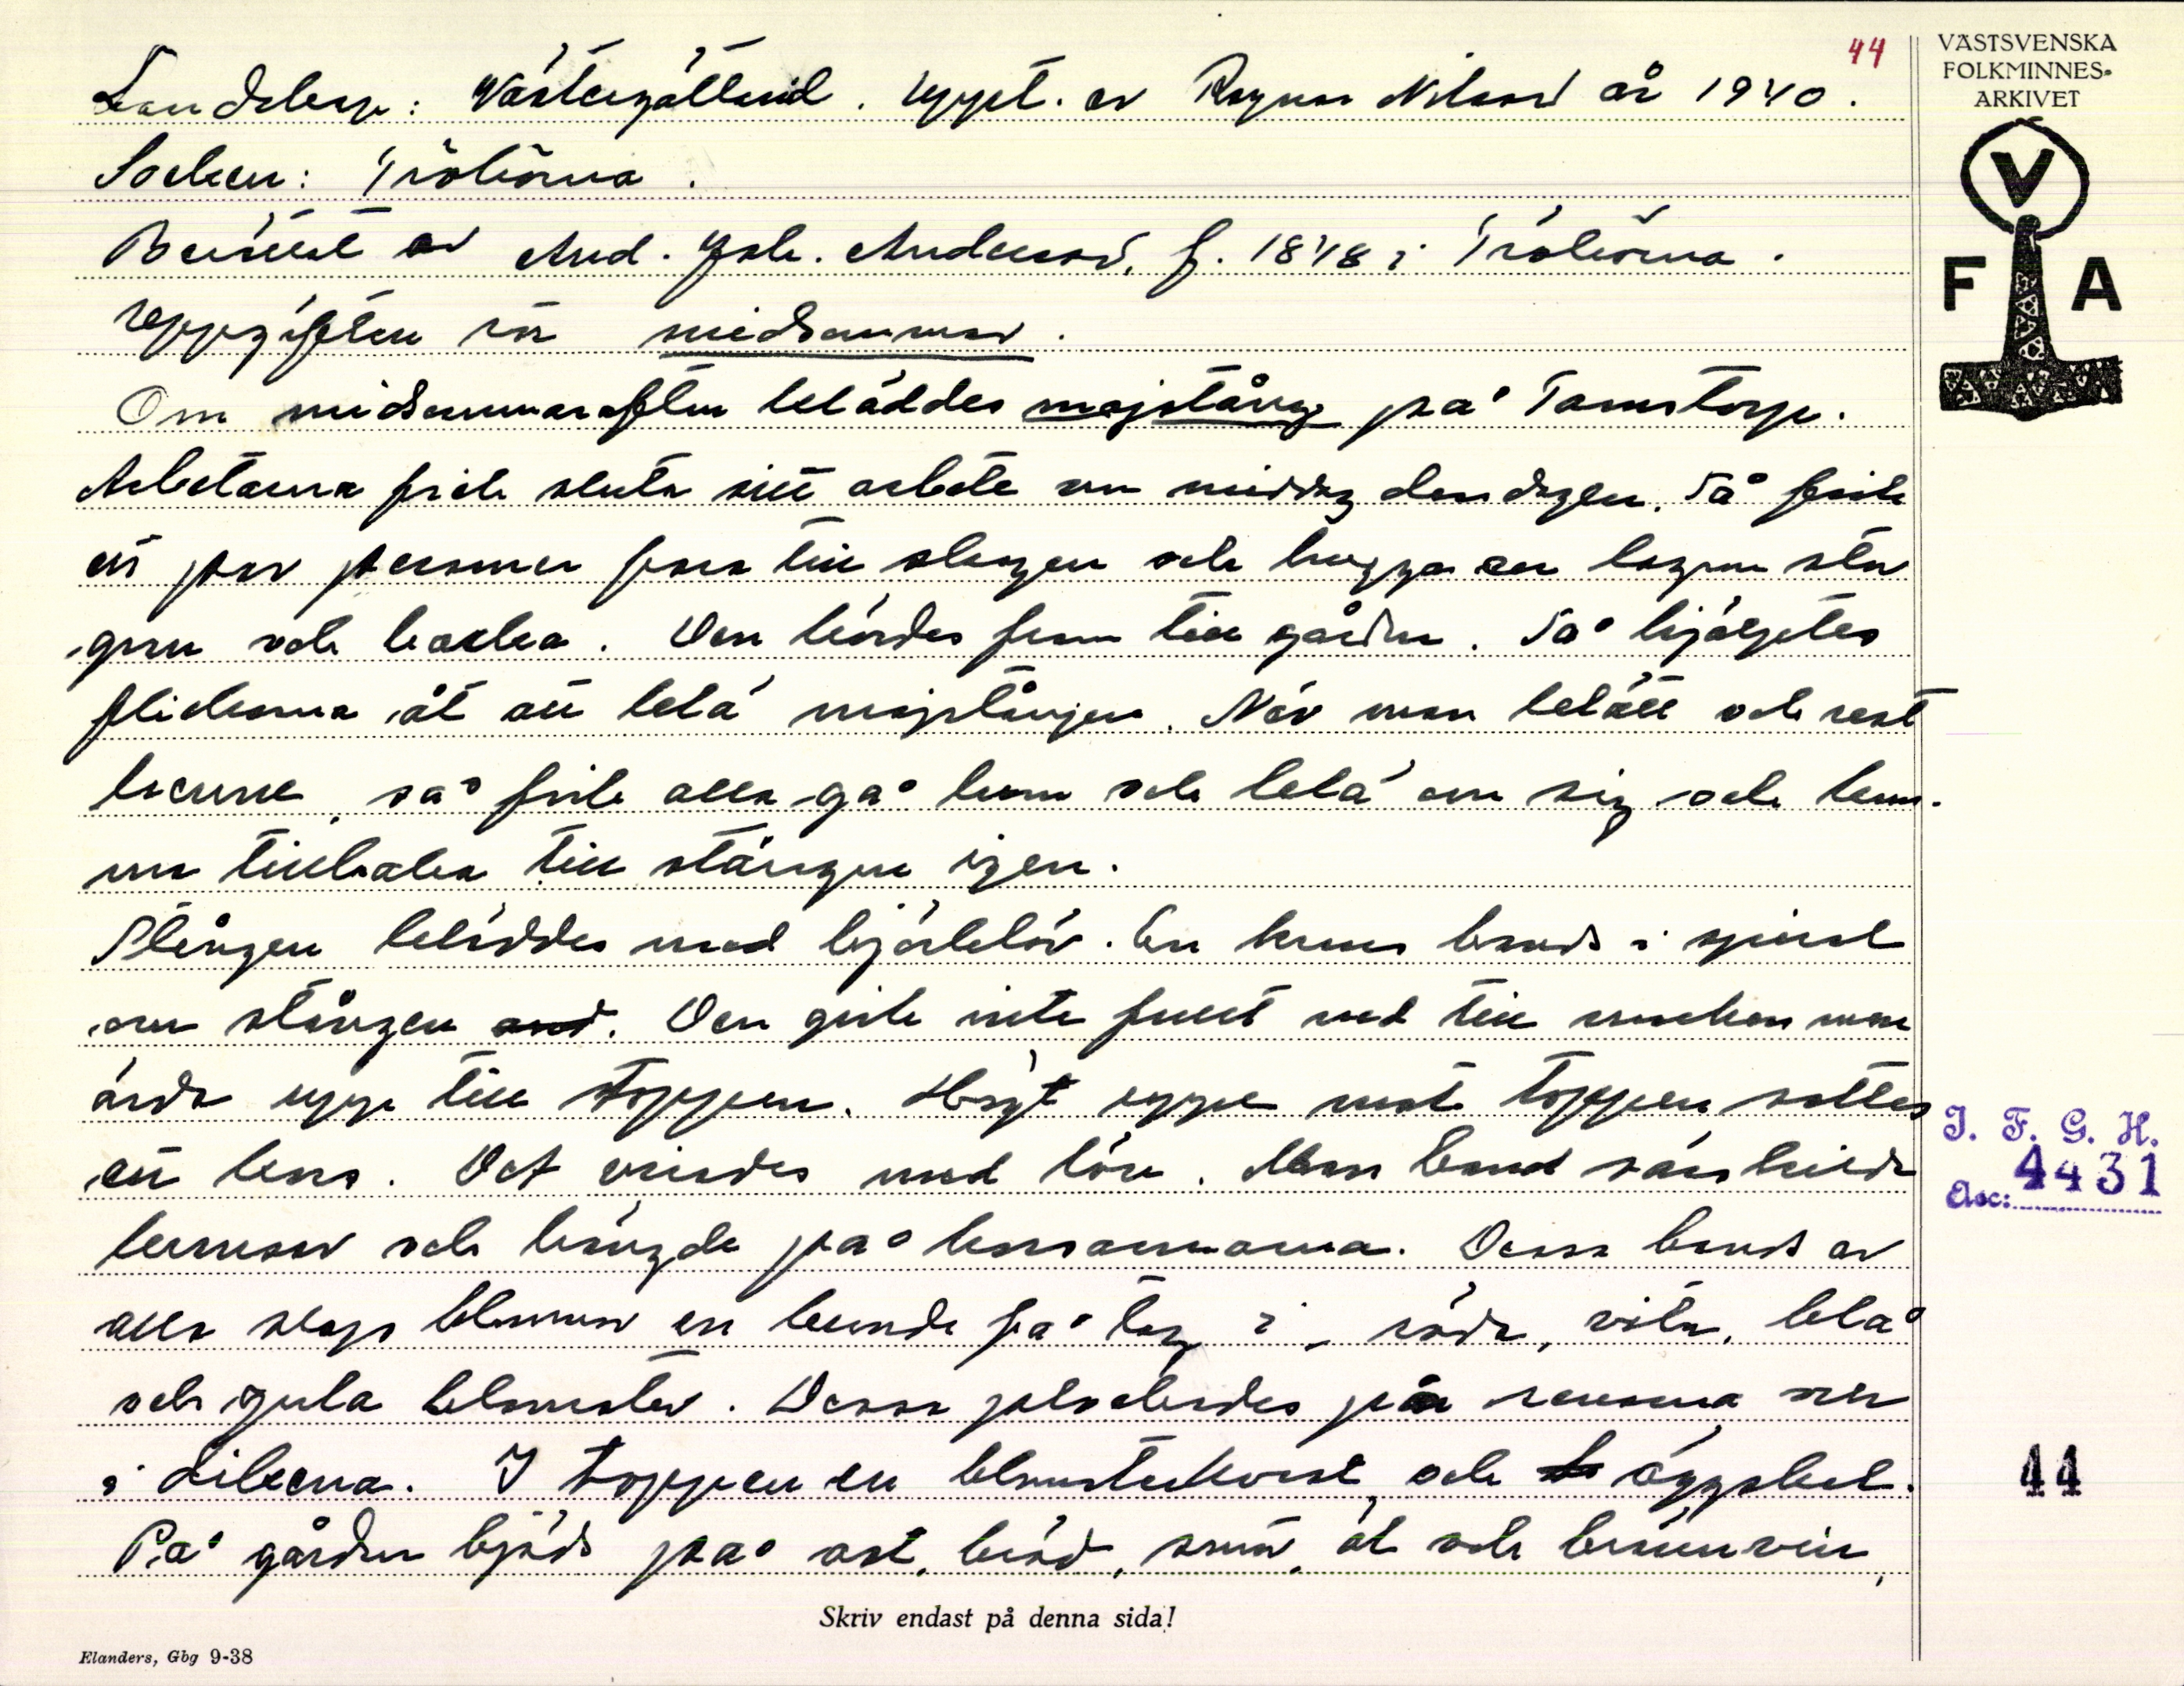 44
VÄSTSVENSKA
FOLKMINNES-
ARKIVET
V
F A
Landskap: Västergötland. Uppt. av Ragnar Nilsson år 1940.
Socken: Trökörna.
Berättat av And. Joh. Andersson, f. 1848 i Trökörna.
Uppgiften rör midsommar.
Om midsommarafton kläddes majstång på Tamstorp.
Arbetarna fick sluta sitt arbete om middag den dagen. Så fick
ett par personer fara till skogen och hugga en lagom stor
gran och barka. Den kördes fram till gården. Så hjälptes
flickorna åt att klä majstången. När man klätt och rest
henne, så fick alla gå hem och klä om sig och kom-
ma tillbaka till stången igen.
Stången kläddes med björklöv. En krans bands i spiral
om stången. Den gick inte fullt ned till marken men
ända upp till toppen. Högt uppe mot toppen sattes
ett kors. Det virades med löv. Man band särskilda
kransar och hängde på korsarmarna. Dessa bands av
alla slags blommor en kunde få tag i, röda, vita, blå
och gula blomster. Dessa plockades på renarna och
i dikena. I toppen en blomsterkvast och äggskal.
På gården bjöds på ost, bröd, smör, öl och brännvin,
I. F. G. H.
Acc: 4431
44
Skriv endast på denna sida!
Elanders, Gbg 9-38